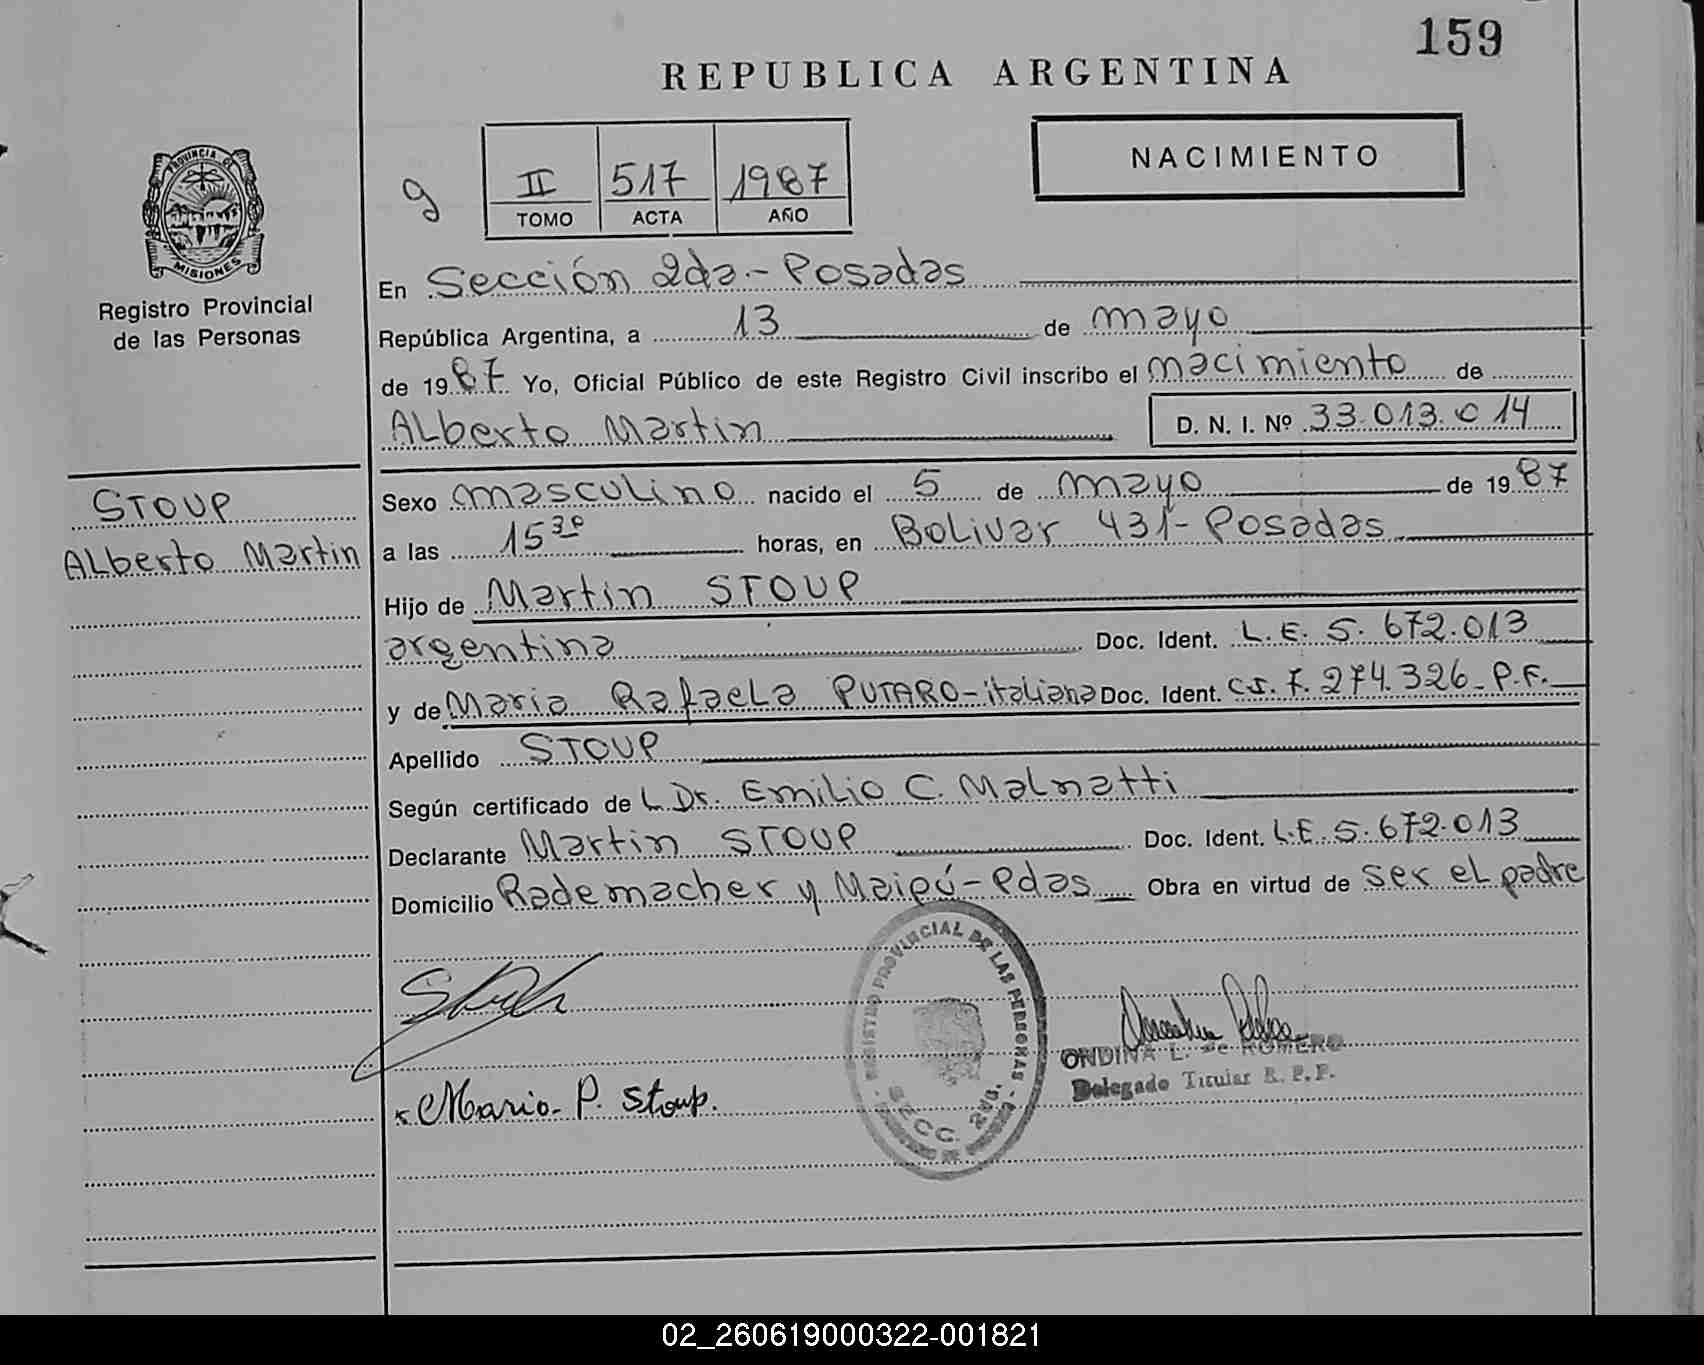 159
REPUBLICA ARGENTINA
NACIMIENTO
g
II 517 1987
TOMO ACTA AÑO
PROVINCIA DE
MISIONES
Registro Provincial
de las Personas
En Sección 2da - Posadas
República Argentina, a 13 de mayo
de 1987 Yo, Oficial Público de este Registro Civil inscribo el nacimiento de
ALberto Martin D. N. I. Nº 33.013.014
STOUP
ALberto Martin
Sexo masculino nacido el 5 de mayo de 1987
a las 15 30 horas, en Bolivar 431 - Posadas
Hijo de Martin STOUP
argentina Doc. Ident. L.E. 5.672.013
y de Maria Rafaela PUTARO - italiana Doc. Ident. C.I. 7.274.326 - P.F.
Apellido STOUP
Según certificado de L Dr. Emilio C. Malnatti
Declarante Martin STOUP Doc. Ident. L.E. 5.672.013
Domicilio Rademacher y Maipú - Pdas Obra en virtud de ser el padre
REGISTRO PROVINCIAL DE LAS PERSONAS
SECC. 2da.
ONDINA L. de ROMERO
Delegado Titular R. P. P.
x Mario P. Stoup.
02_260619000322-001821